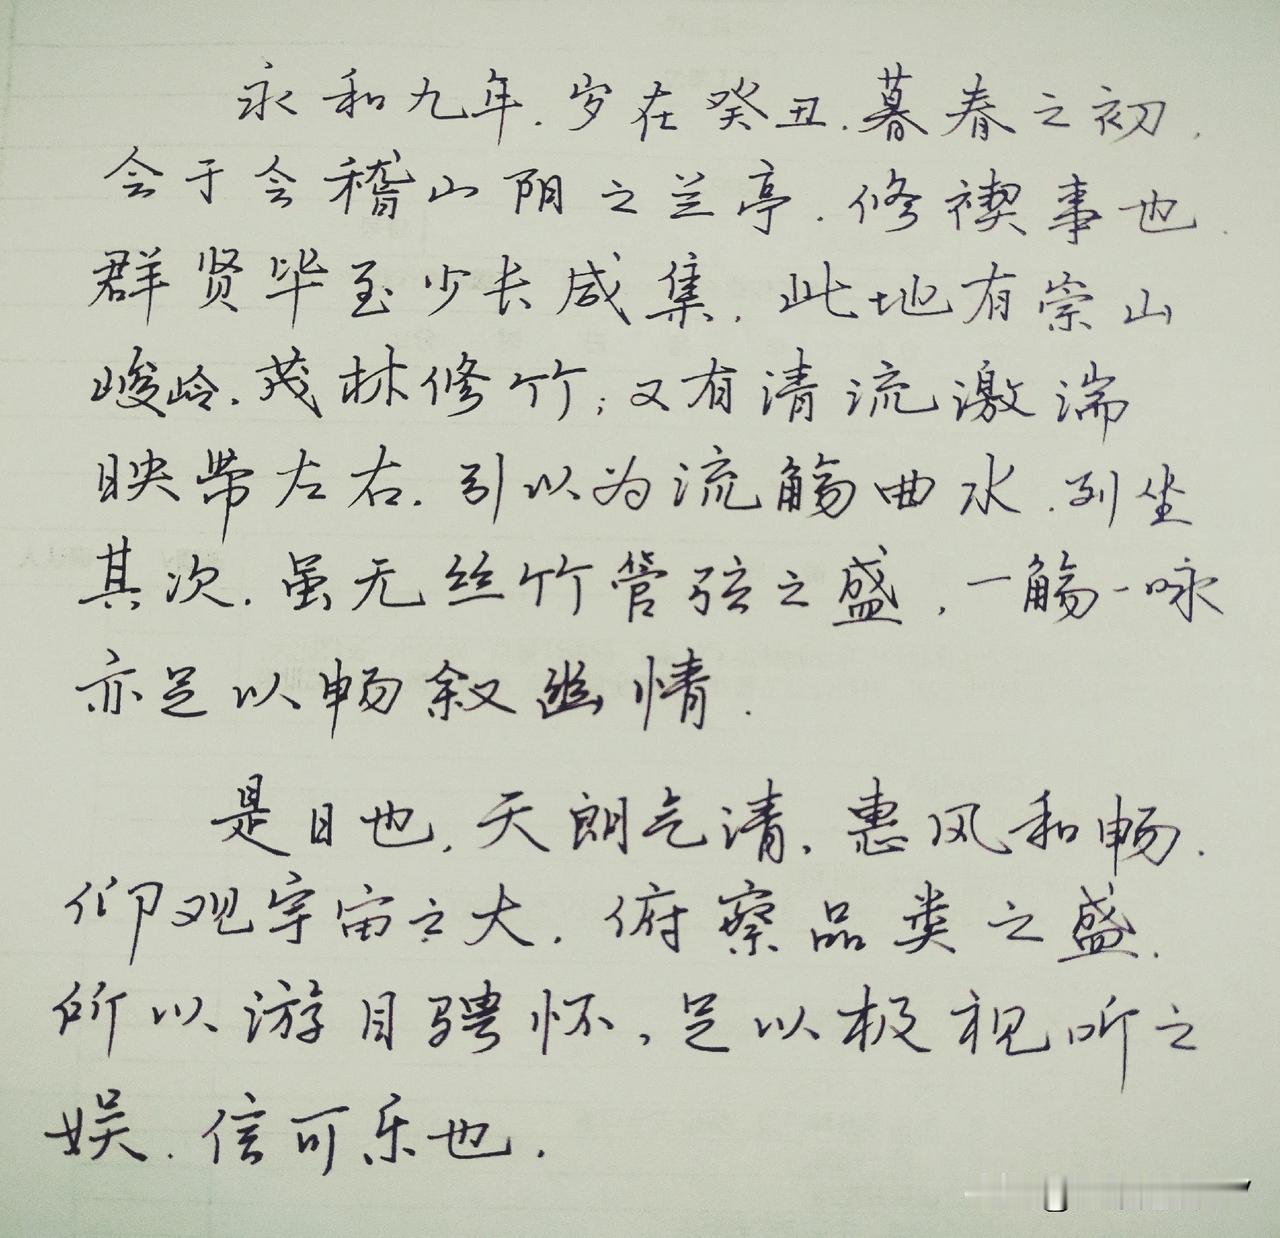 永和九年.岁在癸丑.暮春之初.
会于会稽山阴之兰亭.修禊事也.
群贤毕至少长咸集.此地有崇山
峻岭.茂林修竹;又有清流激湍
映带左右.引以为流觞曲水.列坐
其次.虽无丝竹管弦之盛,一觞一咏
亦足以畅叙幽情.
是日也,天朗气清,惠风和畅.
仰观宇宙之大.俯察品类之盛.
所以游目骋怀,足以极视听之
娱.信可乐也.